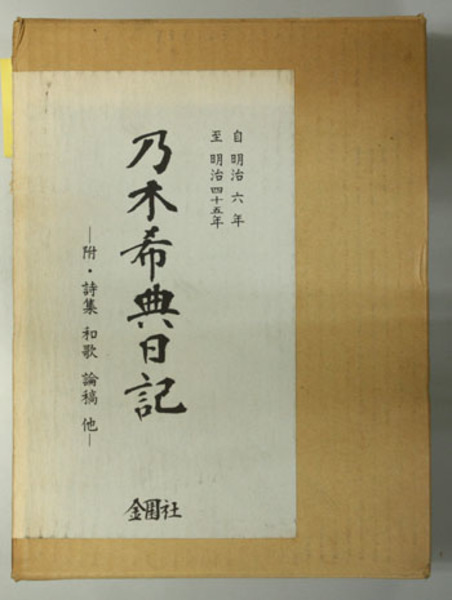 自 明治 六 年
至 明治 四十五年
乃木希典日記
―附・詩集 和歌 論稿 他―
金園社